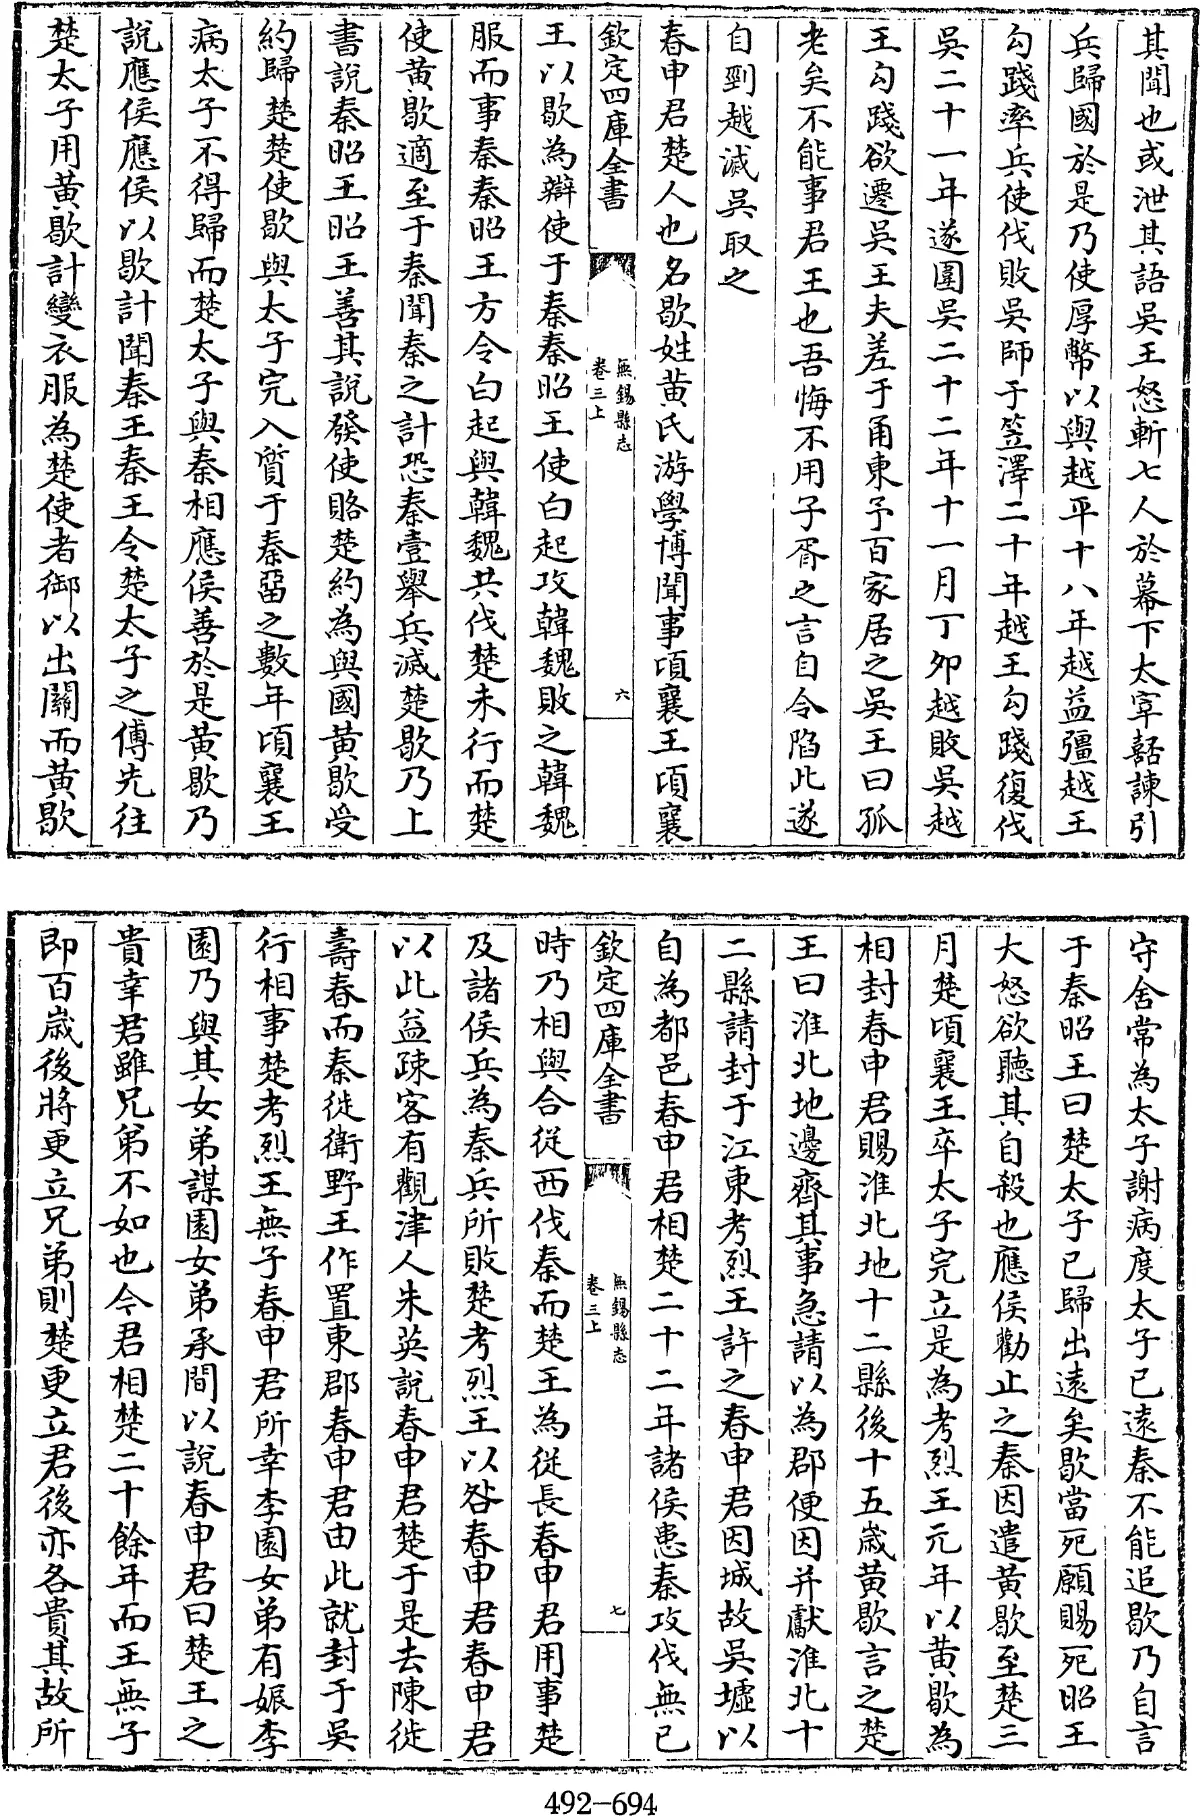 其聞也或泄其語吳王怒斬七人於幕下太宰嚭諫引
兵歸國於是乃使厚幣以與越平十八年越益彊越王
勾踐率兵使伐敗吳師于笠澤二十年越王勾踐復伐
吳二十一年遂圍吳二十二年十一月丁夘越敗吳越
王勾踐欲遷吳王夫差于甬東予百家居之吳王曰孤
老矣不能事君王也吾悔不用子胥之言自令陷此遂
自剄越滅吳取之
春申君楚人也名歇姓黄氏游學博聞事頃襄王頃襄
欽定四庫全書
無錫縣志
卷三上
六
王以歇為辯使于秦秦昭王使白起攻韓魏敗之韓魏
服而事秦秦昭王方令白起與韓魏共伐楚未行而楚
使黄歇適至于秦聞秦之計恐秦壹舉兵滅楚歇乃上
書說秦昭王昭王善其說發使賂楚約為與國黄歇受
約歸楚楚使歇與太子完入質于秦畱之數年頃襄王
病太子不得歸而楚太子與秦相應侯善於是黄歇乃
說應侯應侯以歇計聞秦王秦王令楚太子之傅先往
楚太子用黄歇計變衣服為楚使者御以出關而黄歇
守舍常為太子謝病度太子已遠秦不能追歇乃自言
于秦昭王曰楚太子已歸出遠矣歇當死願賜死昭王
大怒欲聽其自殺也應侯勸止之秦因遣黄歇至楚三
月楚頃襄王卒太子完立是為考烈王元年以黄歇為
相封春申君賜淮北地十二縣後十五歲黄歇言之楚
王曰淮北地邊齊其事急請以為郡便因并獻淮北十
二縣請封于江東考烈王許之春申君因城故吳墟以
自為都邑春申君相楚二十二年諸侯患秦攻伐無已
欽定四庫全書
無錫縣志
卷三上
七
時乃相與合從西伐秦而楚王為從長春申君用事楚
及諸侯兵為秦兵所敗楚考烈王以咎春申君春申君
以此益疎客有觀津人朱英說春申君楚于是去陳徙
壽春而秦徙衛野王作置東郡春申君由此就封于吳
行相事楚考烈王無子春申君所幸李園女弟有娠李
園乃與其女弟謀園女弟承間以說春申君曰楚王之
貴幸君雖兄弟不如也今君相楚二十餘年而王無子
即百歲後將更立兄弟則楚更立君後亦各貴其故所
492-694